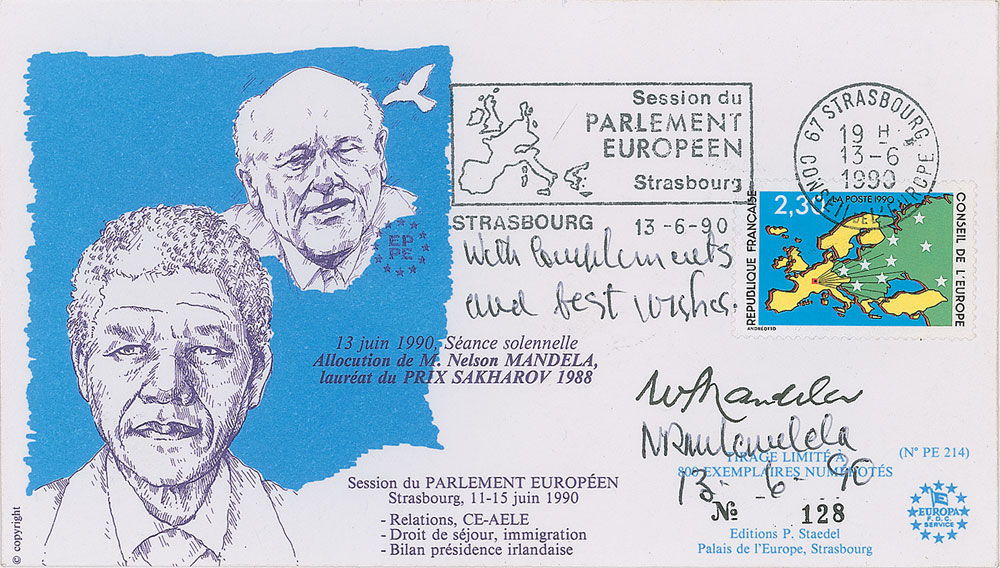 Session du
PARLEMENT
EUROPEEN
Strasbourg
STRASBOURG 13-6-90
67 STRASBOURG
19 H
13-6
1990
CONSEIL DE L'EUROPE
2,30 LA POSTE 1990
REPUBLIQUE FRANÇAISE
CONSEIL DE L'EUROPE
ANDREOTTO
With Complements
and best wishes.
EP
PE
13 juin 1990, Séance solennelle
Allocution de M. Nelson MANDELA,
lauréat du PRIX SAKHAROV 1988
NMandela
13-6-90
TIRAGE LIMITÉ À
800 EXEMPLAIRES NUMÉROTÉS
(N° PE 214)
№ 128
Session du PARLEMENT EUROPÉEN
Strasbourg, 11-15 juin 1990
- Relations, CE-AELE
- Droit de séjour, immigration
- Bilan présidence irlandaise
Editions P. Staedel
Palais de l'Europe, Strasbourg
EUROPA
F.D.C.
SERVICE
© copyright